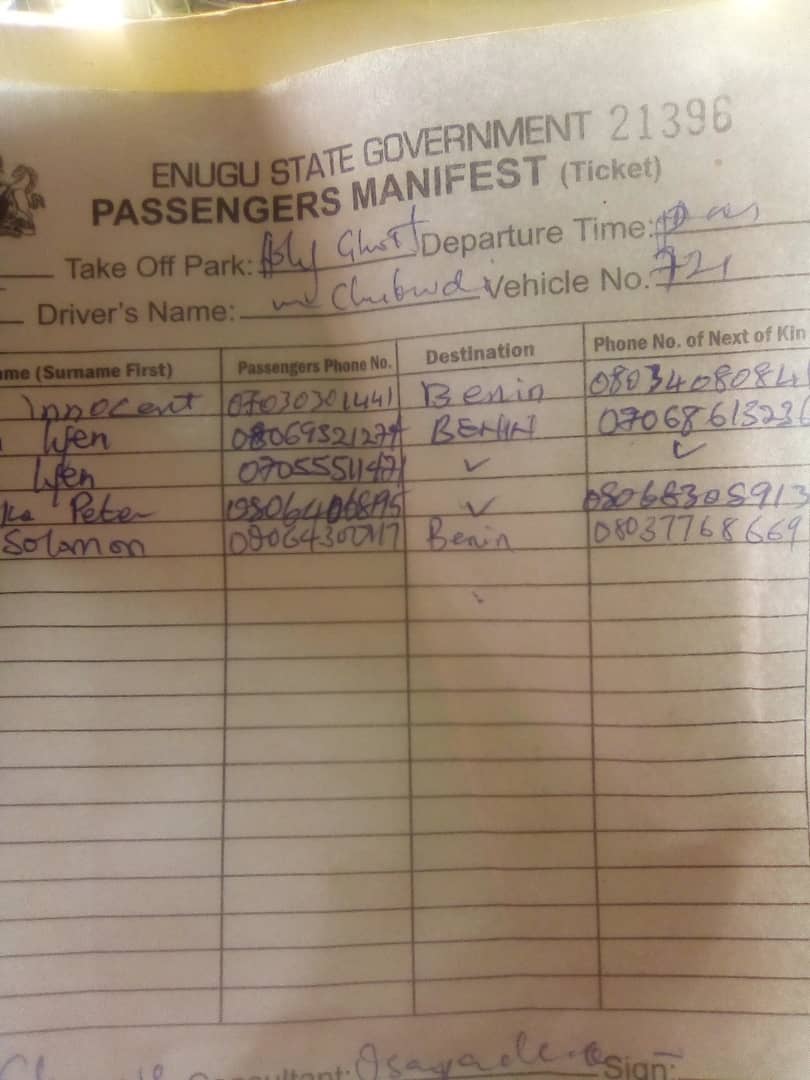 ENUGU STATE GOVERNMENT 21396
PASSENGERS MANIFEST (Ticket)
Take Off Park: Holy Ghost Departure Time:
Driver's Name: Vehicle No. 721
ame (Surname First) Passengers Phone No. Destination Phone No. of Next of Kin
Innocent 07030301441 Benin 0803408084
Ifen 08069321277 BENIN 0706861323
Ifen 07055511471 ✓ ✓
Peter 08064206895 ✓ 08068308913
Solomon Benin 08037768669
Sign: